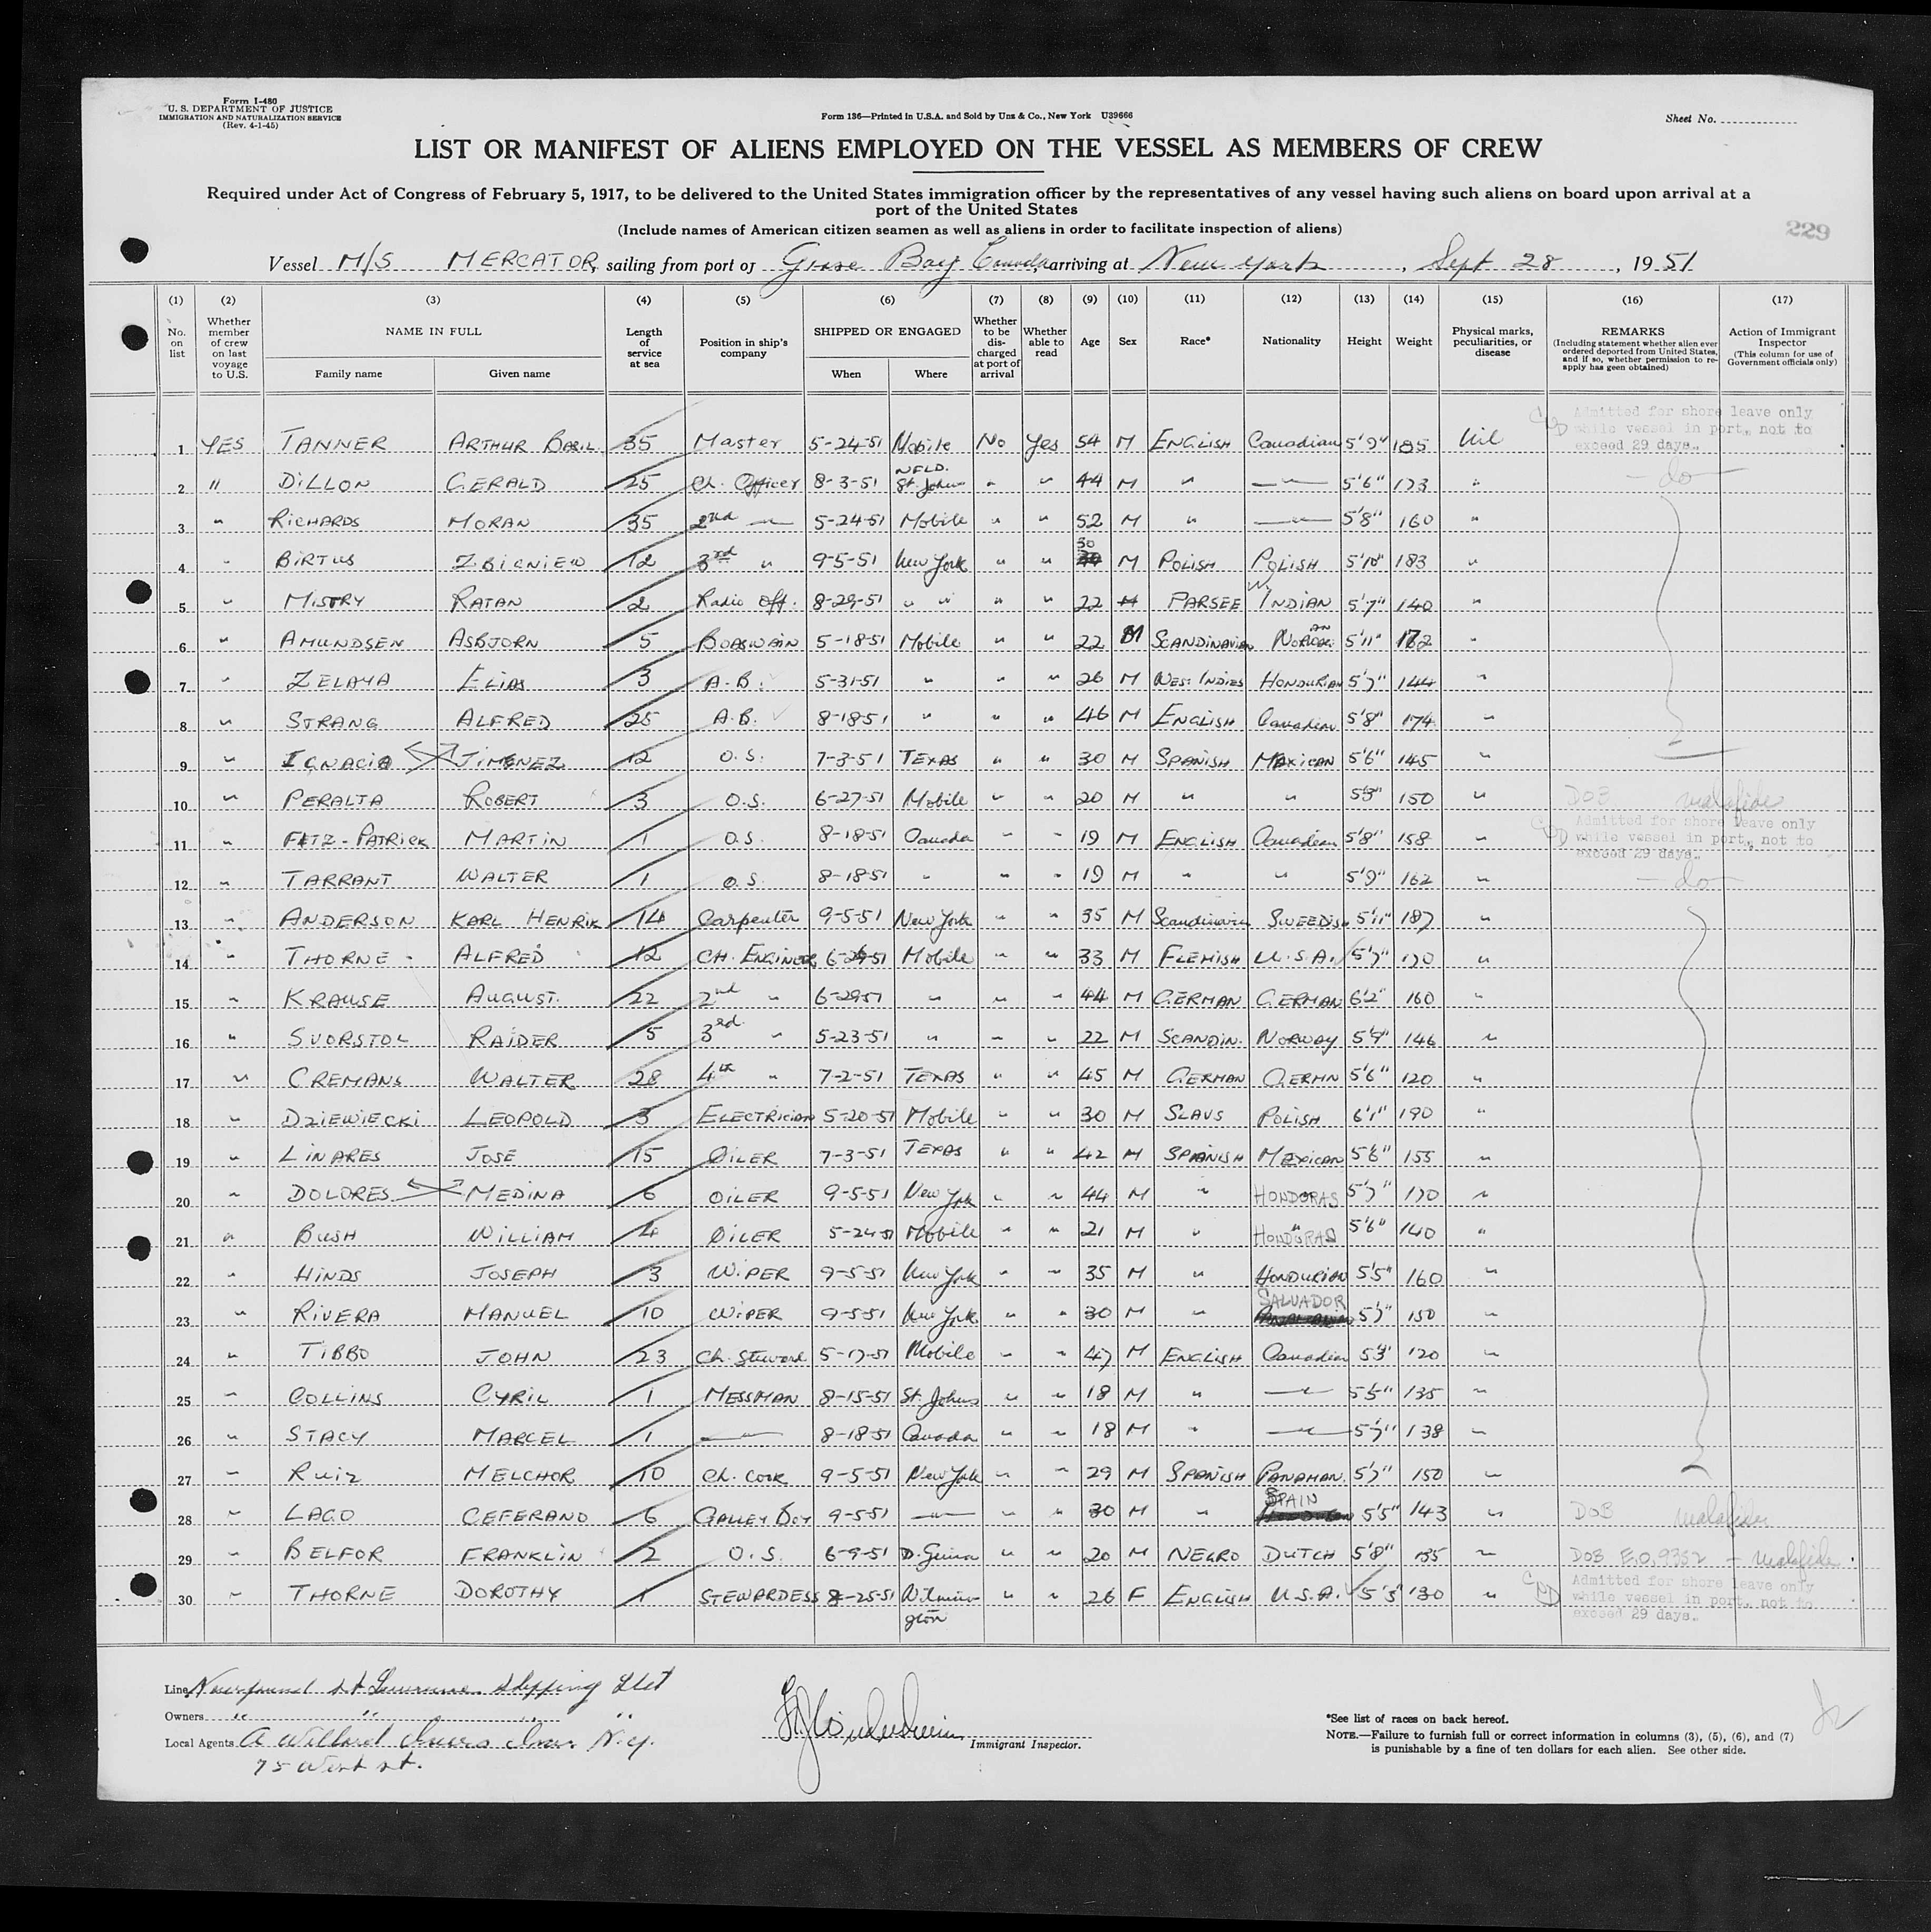 Form I-480
U. S. DEPARTMENT OF JUSTICE
IMMIGRATION AND NATURALIZATION SERVICE
(Rev. 4-1-45)
Form 136—Printed in U.S.A. and Sold by Unz & Co., New York U39666
Sheet No.
LIST OR MANIFEST OF ALIENS EMPLOYED ON THE VESSEL AS MEMBERS OF CREW
Required under Act of Congress of February 5, 1917, to be delivered to the United States immigration officer by the representatives of any vessel having such aliens on board upon arrival at a
port of the United States
(Include names of American citizen seamen as well as aliens in order to facilitate inspection of aliens)
229
Vessel M/S MERCATOR, sailing from port of Bay arriving at New York, Sept 28, 1951
(1) (2) (3) (4) (5) (6) (7) (8) (9) (10) (11) (12) (13) (14) (15) (16) (17)
No. on list
Whether member of crew on last voyage to U.S.
NAME IN FULL
Family name
Given name
Length of service at sea
Position in ship's company
SHIPPED OR ENGAGED
When
Where
Whether to be discharged at port of arrival
Whether able to read
Age
Sex
Race*
Nationality
Height
Weight
Physical marks, peculiarities, or disease
REMARKS
(Including statement whether alien ever ordered deported from United States, and if so, whether permission to reapply has geen obtained)
Action of Immigrant Inspector
(This column for use of Government officials only)
Admitted for shore leave only
while vessel in port, not to
exceed 29 days.
1 YES TANNER ARTHUR BASIL 35 Master 5-24-51 Mobile No Yes 54 M ENGLISH Canadian 5'9" 185 Nil
2 " DILLON GERALD 25 Ch. Officer 8-3-51 NFLD. St. Johns " " 44 M " — " — 5'6" 173 " — do —
3 " RICHARDS MORAN 35 2nd — " — 5-24-51 Mobile " " 52 M " — " — 5'8" 160 "
4 " BIRTUS ZBIGNIEW 12 3rd " 9-5-51 New York " " 30 M POLISH POLISH 5'10" 183 "
5 " MISTRY RATAN 2 Radio Off. 8-29-51 " " " " 22 M PARSEE INDIAN 5'7" 140 "
6 " AMUNDSEN ASBJORN 5 BOASWAIN 5-18-51 Mobile " " 22 M SCANDINAVIAN 5'11" 172 "
7 " ZELAYA ELIAS 3 A.B. 5-31-51 " " " 26 M WEST INDIES HONDURIAN 5'7" 144 "
8 " STRANG ALFRED 25 A.B. 8-18-51 " " " 46 M ENGLISH Canadian 5'8" 174 "
9 " IGNACIO JIMENEZ 12 O.S. 7-3-51 TEXAS " " 30 M SPANISH MEXICAN 5'6" 145 "
10 " PERALTA ROBERT 3 O.S. 6-27-51 Mobile " " 20 M " " 150 " DOB malafide
Admitted for shore leave only
while vessel in port, not to
exceed 29 days.
11 " FITZ-PATRICK MARTIN 1 O.S. 8-18-51 Canada " " 19 M ENGLISH Canadian 5'8" 158 "
12 " TARRANT WALTER 1 O.S. 8-18-51 " " " 19 M " " 5'9" 162 " — do —
13 " ANDERSON KARL HENRIK 14 Carpenter 9-5-51 New York " " 35 M Scandinavian SWEEDISH 5'11" 187 "
14 " THORNE ALFRED 12 CH. ENGINEER Mobile " " 33 M FLEMISH U.S.A. 5'7" 170 "
15 " KRAUSE AUGUST. 22 2nd " 6-29-51 " " " 44 M GERMAN GERMAN 6'2" 160 "
16 " SVORSTOL RAIDER 5 3rd " 5-23-51 " " " 22 M SCANDIN. NORWAY 146 "
17 " CREMANS WALTER 28 4th " 7-2-51 TEXAS " " 45 M GERMAN GERMN 5'6" 120 "
18 " DZIEWIECKI LEOPOLD 3 ELECTRICIAN 5-20-51 Mobile " " 30 M SLAVS POLISH 6'1" 190 "
19 " LINARES JOSE 15 OILER 7-3-51 TEXAS " " 42 M SPANISH MEXICAN 5'6" 155 "
20 " DOLORES MEDINA 6 OILER 9-5-51 New York " " 44 M " HONDORAS 5'7" 170 "
21 " BUSH WILLIAM 4 OILER 5-24-51 Mobile " " 21 M " HONDURAS 5'6" 140 "
22 " HINDS JOSEPH 3 WIPER 9-5-51 New York " " 35 M " HONDURIAN 5'5" 160 "
23 " RIVERA MANUEL 10 WIPER 9-5-51 New York " " 30 M " SALVADOR 5'7" 150 "
24 " TIBBO JOHN 23 Ch. Steward 5-17-51 Mobile " " 47 M ENGLISH Canadian 120 "
25 " COLLINS CYRIL 1 MESSMAN 8-15-51 St. Johns " " 18 M " — " — 5'5" 135 "
26 " STACY MARCEL 1 — " — 8-18-51 Canada " " 18 M " — " — 5'7" 138 "
27 " RUIZ MELCHOR 10 Ch. Cook 9-5-51 New York " " 29 M SPANISH PANAMAN. 5'7" 150 "
28 " LAGO CEFERANO 6 GALLEY BOY 9-5-51 — " — " " 30 M " SPAIN 5'5" 143 " DOB malafide
29 " BELFOR FRANKLIN 2 O.S. 6-9-51 D. Guina " " 20 M NEGRO DUTCH 5'8" 135 " DOB E.O. 9352 — malafide
30 " THORNE DOROTHY 1 STEWARDESS 8-25-51 Wilmington " " 26 F ENGLISH U.S.A. 5'3" 130 "
Admitted for shore leave only
while vessel in port, not to
exceed 29 days.
Line shipping
Owners " " " "
Local Agents A Willard N.Y.
75 West st.
Immigrant Inspector.
*See list of races on back hereof.
NOTE.—Failure to furnish full or correct information in columns (3), (5), (6), and (7)
is punishable by a fine of ten dollars for each alien. See other side.